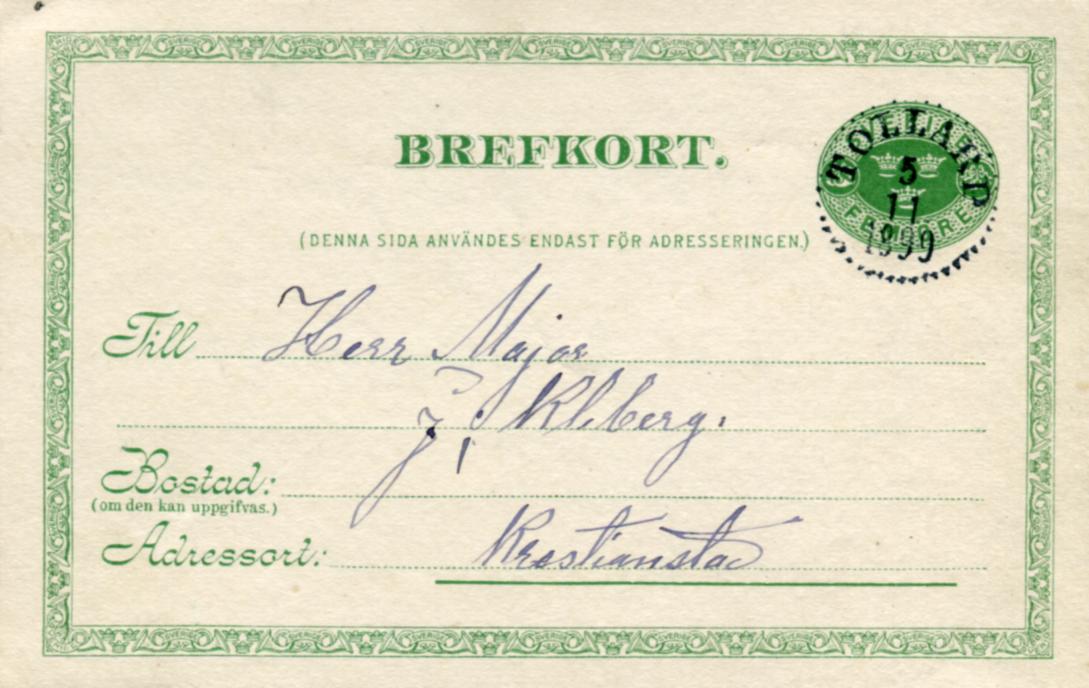 BREFKORT.
TOLLARP
5
11
1899
FEM ÖRE
(DENNA SIDA ANVÄNDES ENDAST FÖR ADRESSERINGEN.)
Till Herr Major
J. Kleberg.
Bostad:
(om den kan uppgifvas.)
Adressort: Kristianstad